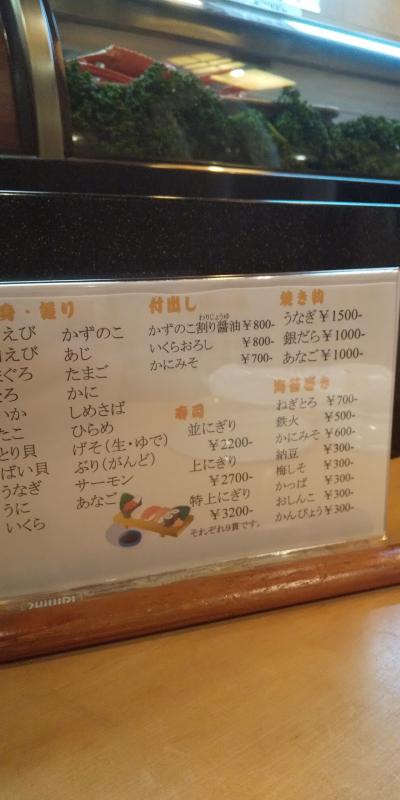 身・握り
えび
えび
ぐろ
ろ
いか
たこ
とり貝
ばい貝
うなぎ
うに
いくら
かずのこ
あじ
たまご
かに
しめさば
ひらめ
げそ(生・ゆで)
ぶり(がんど)
サーモン
あなご
付出し
わりじょうゆ
かずのこ割り醤油 ¥800-
いくらおろし ¥800-
かにみそ ¥700-
寿司
並にぎり
¥2200-
上にぎり
¥2700-
特上にぎり
¥3200-
それぞれ9貫です。
焼き物
うなぎ ¥1500-
銀だら ¥1000-
あなご ¥1000-
海苔巻き
ねぎとろ ¥700-
鉄火 ¥500-
かにみそ ¥600-
納豆 ¥300-
梅しそ ¥300-
かっぱ ¥300-
おしんこ ¥300-
かんぴょう ¥300-